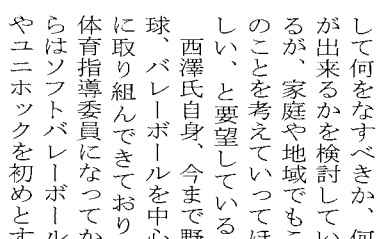 して何をなすべきか、何
が出来るかを検討してい
るが、家庭や地域でもこ
のことを考えていってほ
しい、と要望している
　西澤氏自身、今まで野
球、バレーボールを中心
に取り組んできており
体育指導委員になってか
らはソフトバレーボール
やユニホックを初めとす